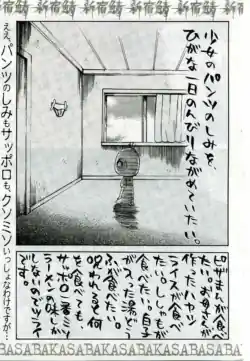 新宿鯖
少女のパンツのしみを、
ひがな一日のんびりながめていたい。
ピザまんが食べ
たい。お母さんが
作ったハヤシ
ライスが食べ
たい。ししゃもが
食べたい。白子
ガスった湯どう
ふが食べたい。
呪われるぞ何
を食べても
サッポロ一番ミソ
ラーメンの味しか
しないのでシュア
です。
ええ、パンツのしみもサッポロも、クソミソ
いっしょなわけですが…
BASABAKASABAKASA